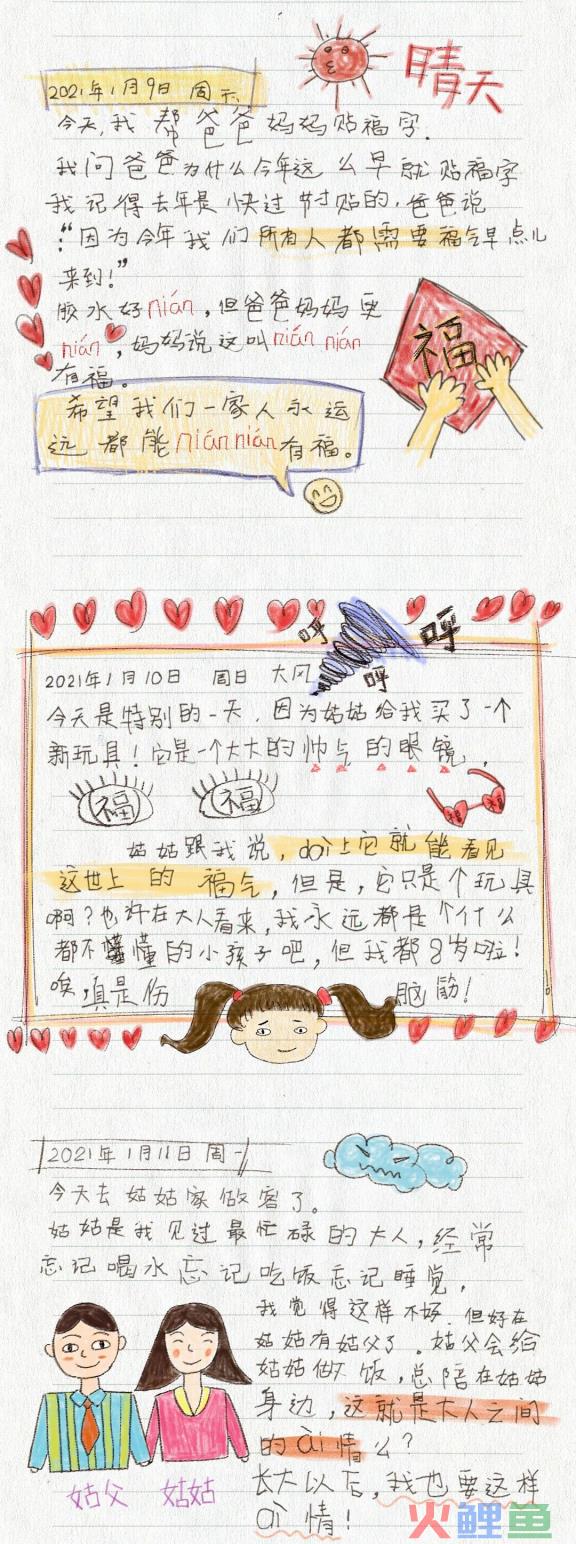 2021年1月9日 周六
晴天
今天,我帮爸爸妈妈贴福字.
我问爸爸为什么今年这么早就贴福字
我记得去年是快过节时贴的,爸爸说
:"因为今年我们所有人都需要福气早点儿
来到!"
胶水好nián,但爸爸妈妈更
nián,妈妈说这叫nián nián
有福。
福
希望我们一家人永远
远都能niánnián有福。
呼
呼
呼
2021年1月10日 周日 大风
今天是特别的一天,因为姑姑给我买了一个
新玩具!它是一个大大的帅气的眼镜,
福 福 福 福
姑姑跟我说,dài上它就能看见
这世上的福气,但是,它只是个玩具
啊?也许在大人看来,我永远都是个什么
都不懂的小孩子吧,但我都8岁啦!
唉,真是伤脑筋!
2021年1月11日 周一
今天去姑姑家做客了。
姑姑是我见过最忙碌的大人,经常
忘记喝水忘记吃饭忘记睡觉,
我觉得这样不好.但好在
姑姑有姑父了。姑父会给
姑姑做饭,总陪在姑姑
身边,这就是大人之间
的ài情么?
长大以后,我也要这样
ài情!
姑父 姑姑
火鲤鱼